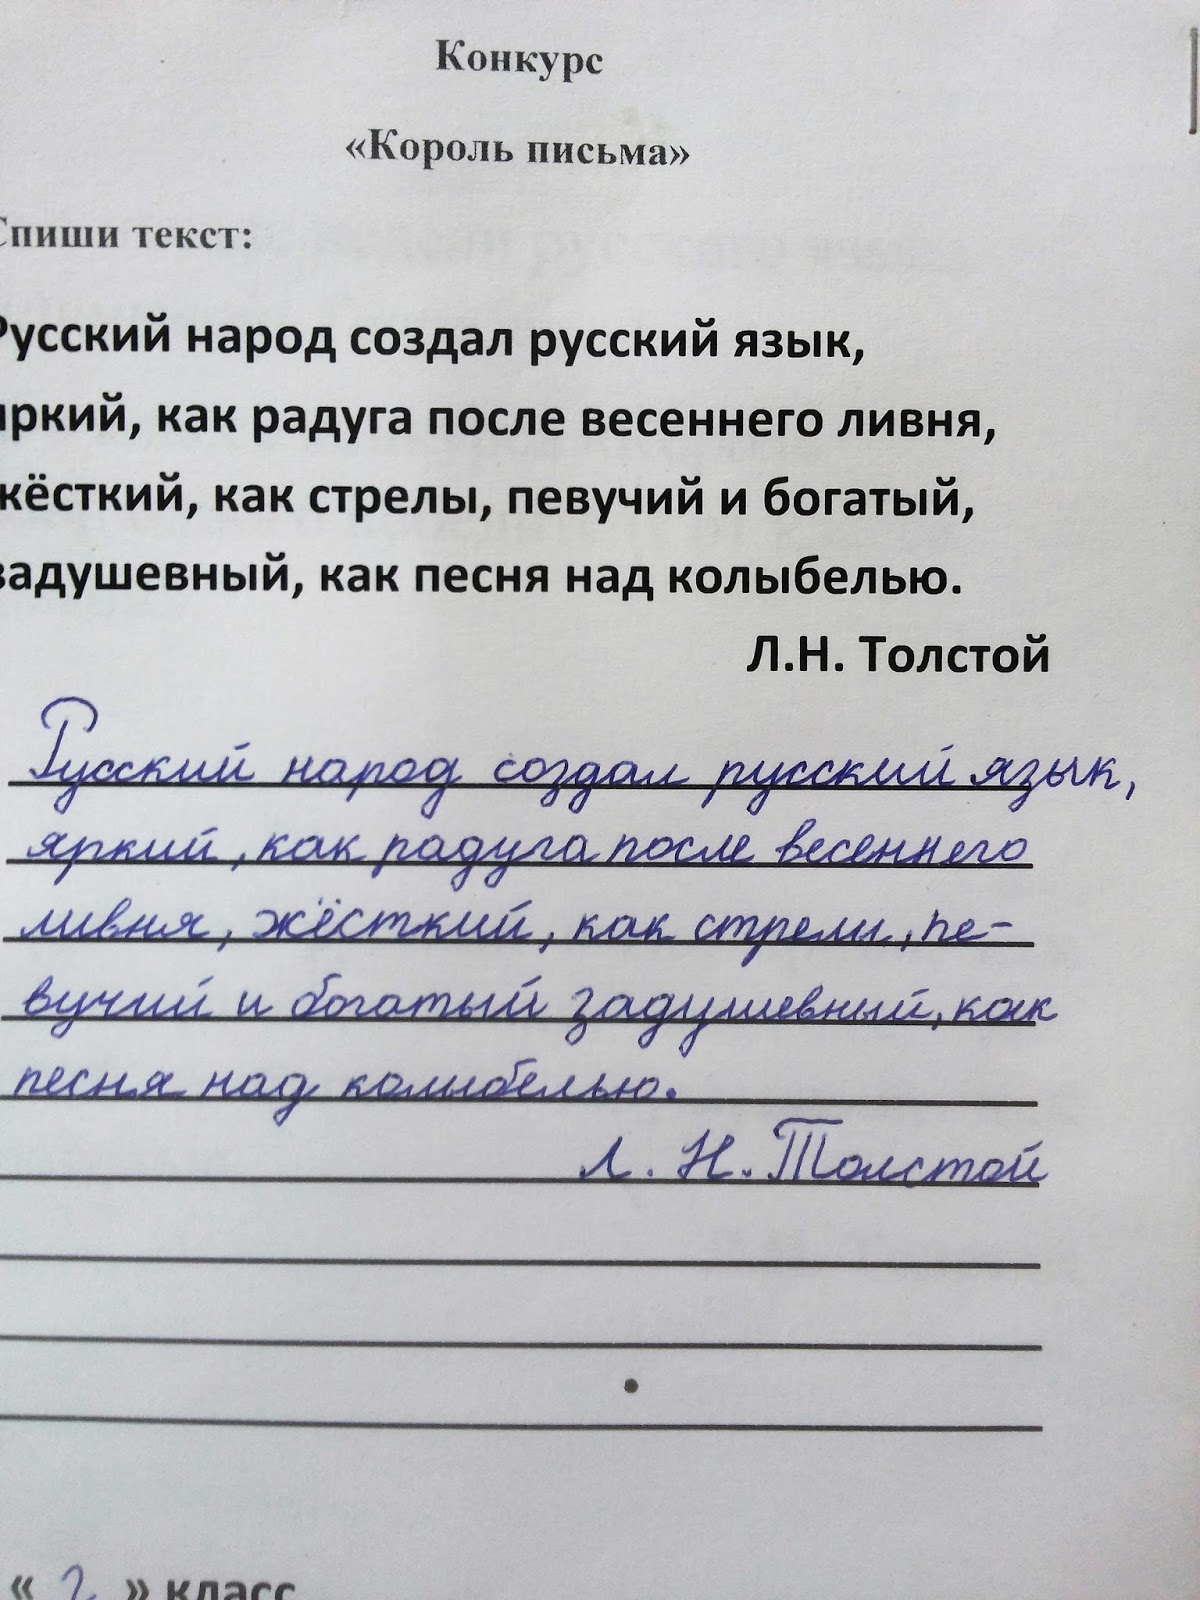 Конкурс
«Король письма»
Спиши текст:
Русский народ создал русский язык,
яркий, как радуга после весеннего ливня,
жёсткий, как стрелы, певучий и богатый,
задушевный, как песня над колыбелью.
Л.Н. Толстой
Русский народ создал русский язык,
яркий, как радуга после весеннего
ливня, жёсткий, как стрелы, пе-
вучий и богатый задушевный, как
песня над колыбелью.
Л. Н. Толстой
« 2 » класс